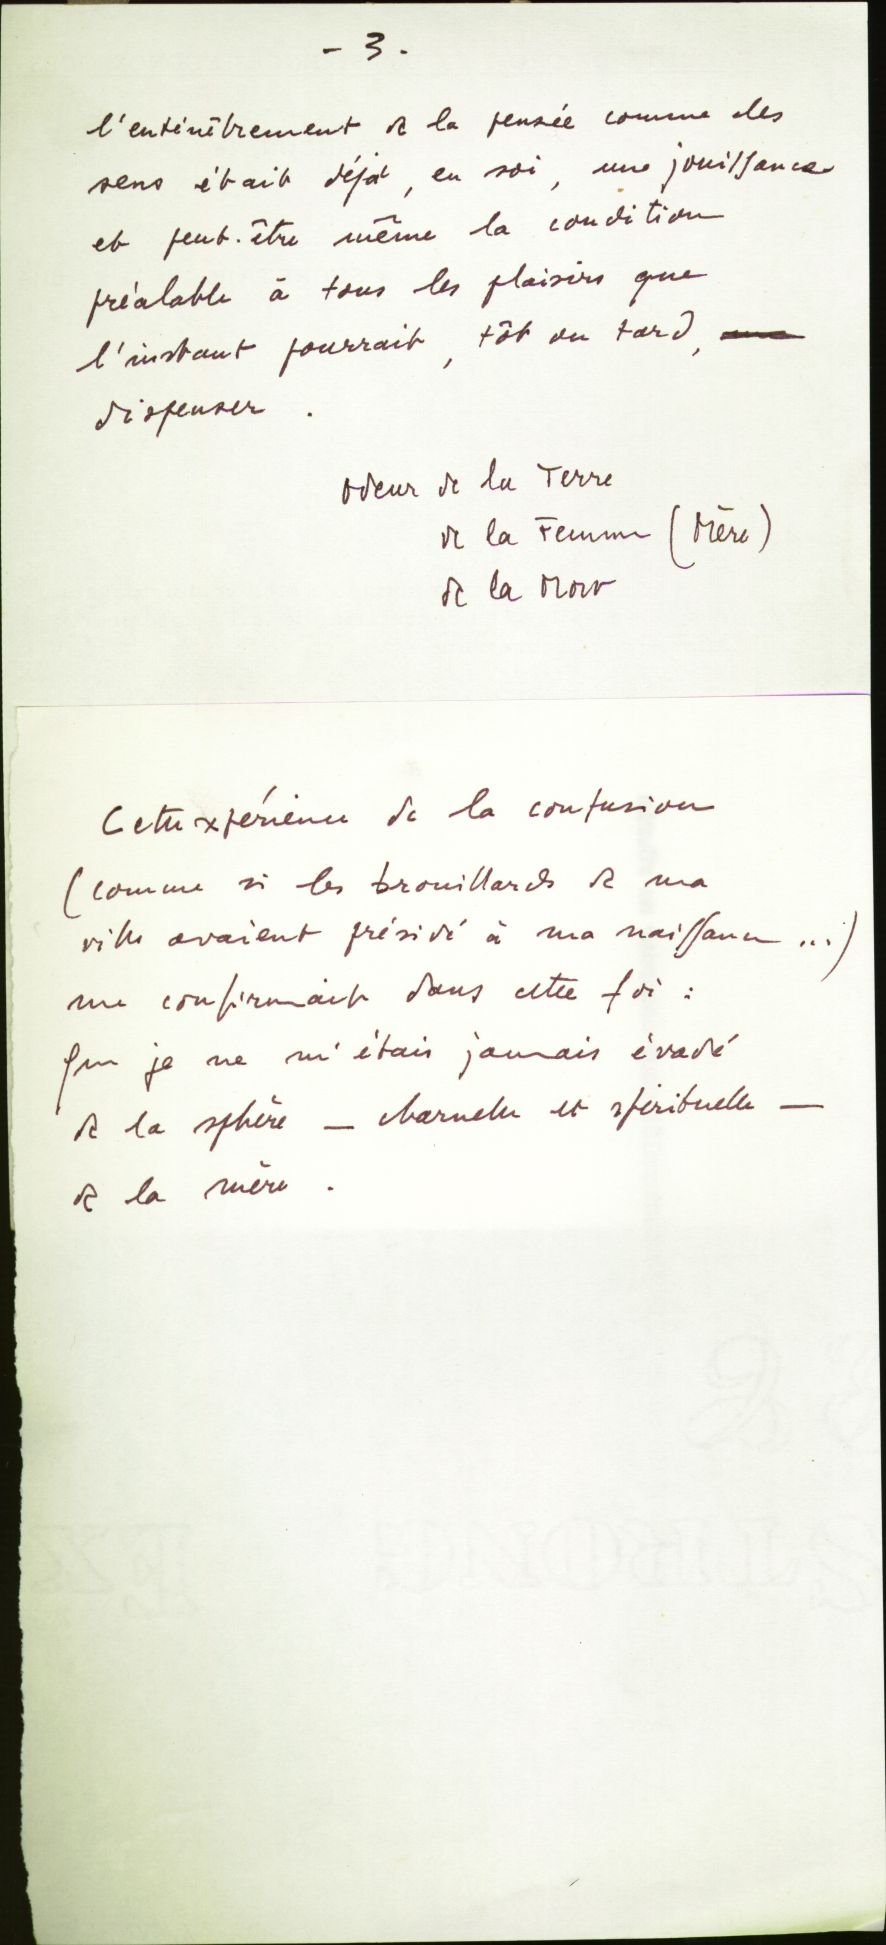 - 3 .
l'enténèbrement de la pensée comme des
sens était déjà, en soi, une jouissance
et peut-être même la condition
préalable à tous les plaisirs que
l'instant pourrait, tôt ou tard,
dispenser .
Odeur de la Terre
de la Femme (Mère)
de la Mort
Cette expérience de la confusion
(comme si les brouillards de ma
ville avaient présidé à ma naissance ...)
me confirmait dans cette foi :
Que je ne m'étais jamais évadé
de la sphère — charnelle et spirituelle —
de la mère .